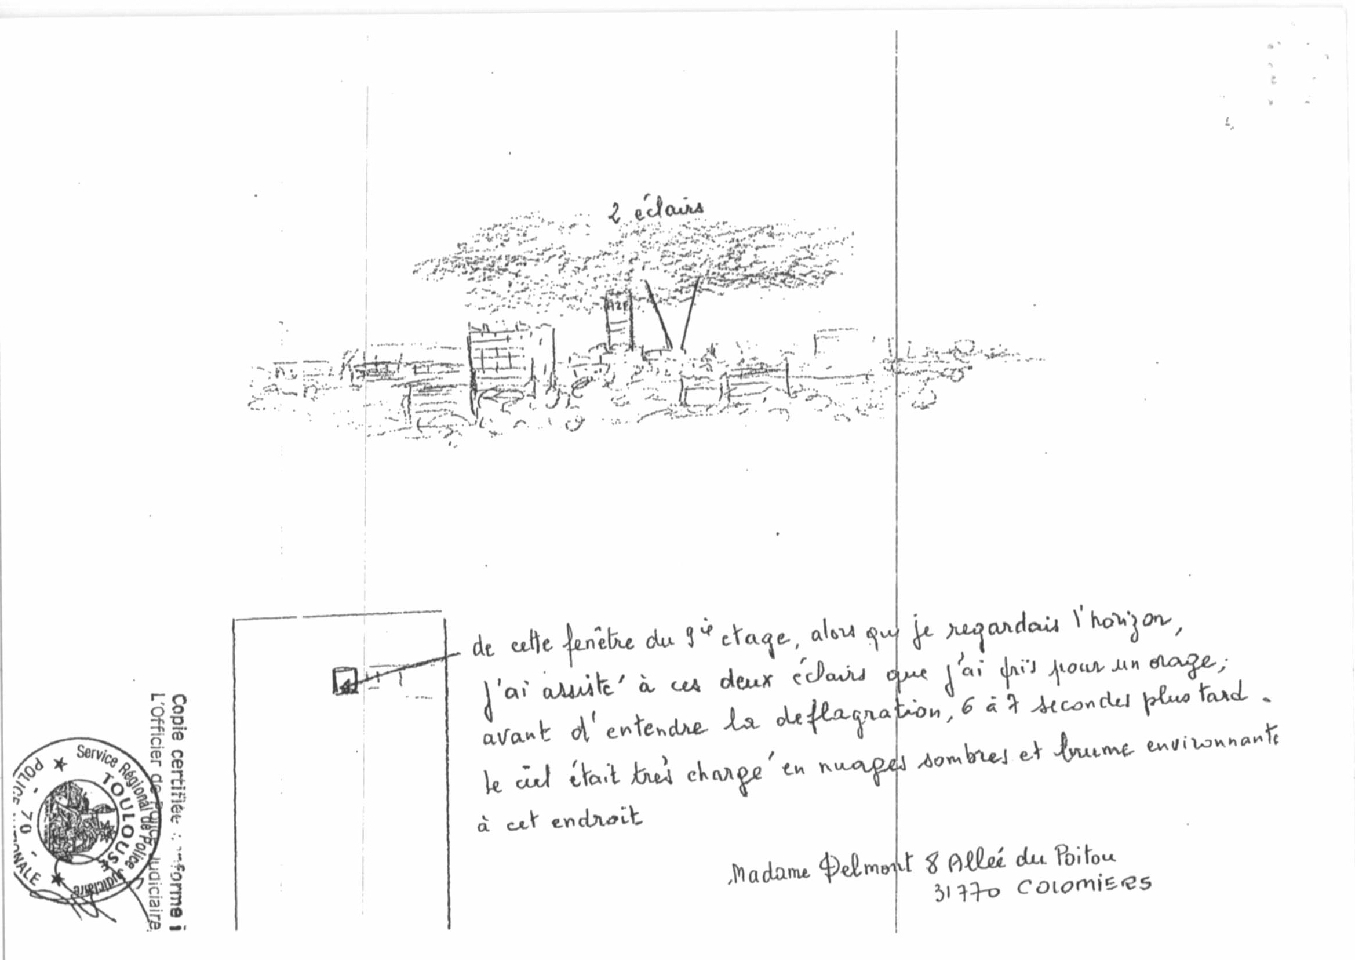 2 éclairs
AZF
de cette fenêtre du 9ié etage, alors que je regardais l'horizon,
j'ai assisté à ces deux éclairs que j'ai pris pour un orage;
avant d'entendre la deflagration, 6 à 7 secondes plus tard.
le ciel était très chargé en nuages sombres et brume environnante
à cet endroit
Madame Delmont 8 Alleé du Poitou
31770 COLOMIERS
Copie certifiée
L'Officier de Judiciaire
Service Régional de Police Judiciaire
TOULOUSE
POLICE
70